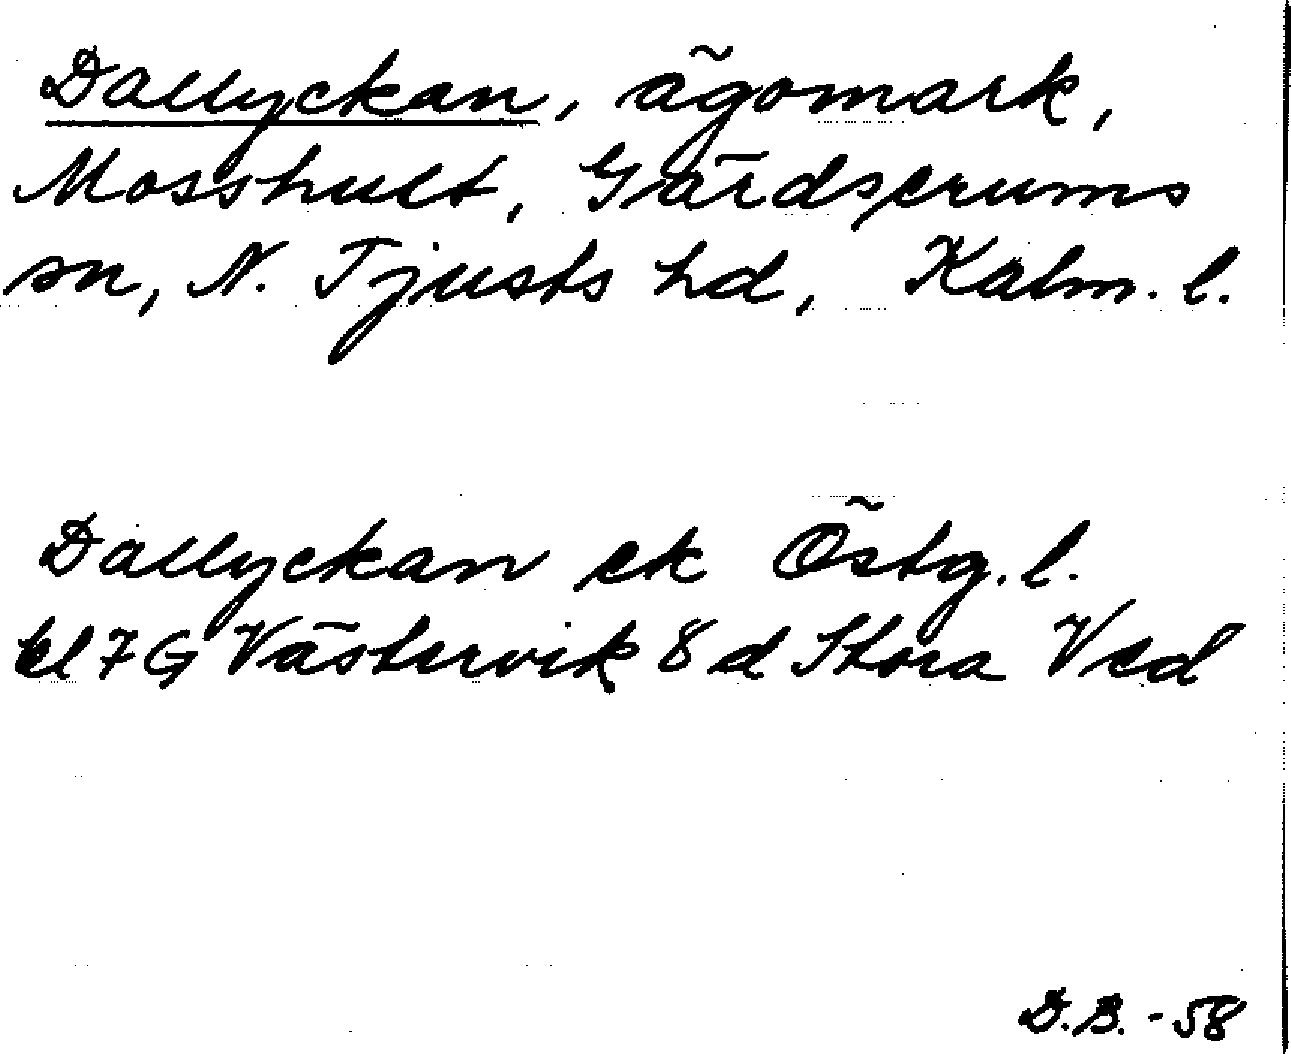 Dallyckan, ägomark,
Mosshult, Gärdserums
sn, N. Tjusts hd, Kalm. l.
Dallyckan ek Östg. l.
bl 7 G Västervik 8 d Stora Ved
D.B. - 58